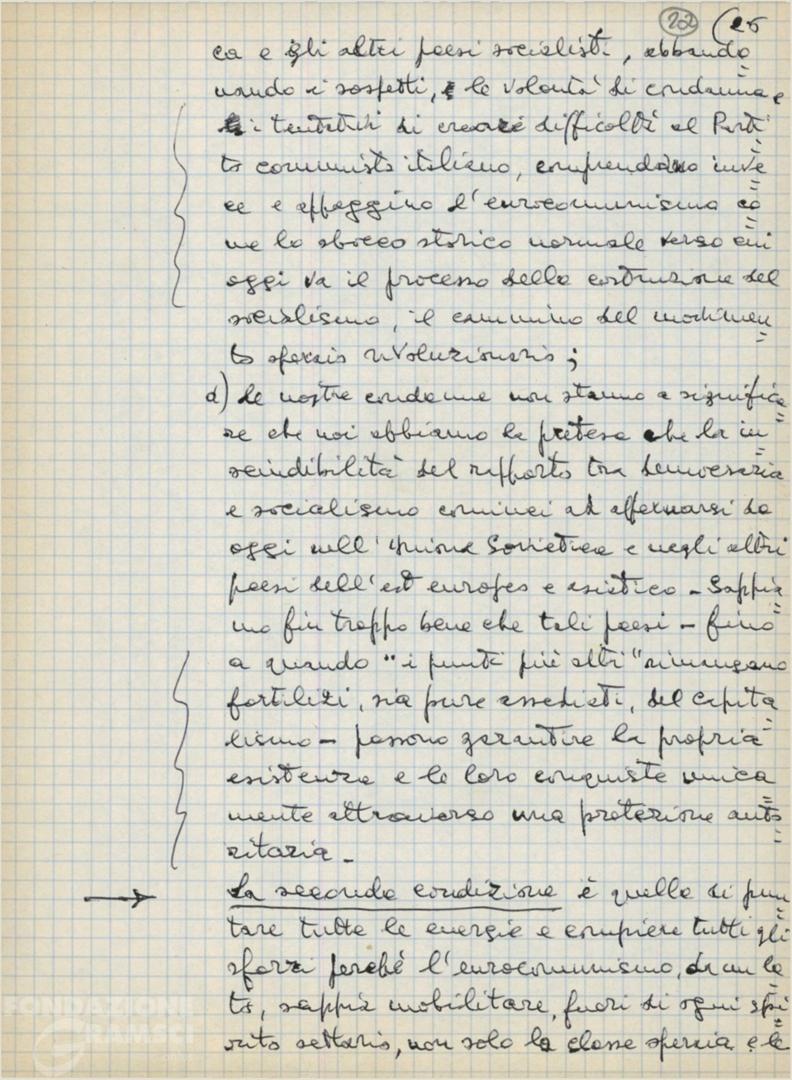 22 (25
ca e gli altri paesi socialisti, abbando
nando i sospetti, e le volontà di condanna e
i tentativi di creare difficoltà al Parti
to comunista italiano, comprendano inve
ce e appoggino l'eurocomunismo co
me lo sbocco storico normale verso cui
oggi va il processo della costruzione del
socialismo, il cammino del movimen
to operaio rivoluzionario;
d) le nostre condanne non stanno a significa
re che noi abbiamo la pretesa che la in
scindibilità del rapporto tra democrazia
e socialismo cominci ad affermarsi da
oggi nell'Unione Sovietica e negli altri
paesi dell'est europeo e asiatico - Sappia
mo fin troppo bene che tali paesi - fino
a quando "i punti più alti" rimangano
fortilizi, sia pure assediati, del capita
lismo - possono garantire la propria
esistenza e le loro conquiste unica
mente attraverso una protezione auto
ritaria -
La seconda condizione è quella di pun
tare tutte le energie e compiere tutti gli
sforzi perché l'eurocomunismo, da un la
to, sappia mobilitare, fuori di ogni spi
rito settario, non solo la classe operaia e le
FONDAZIONE
GRAMSCI